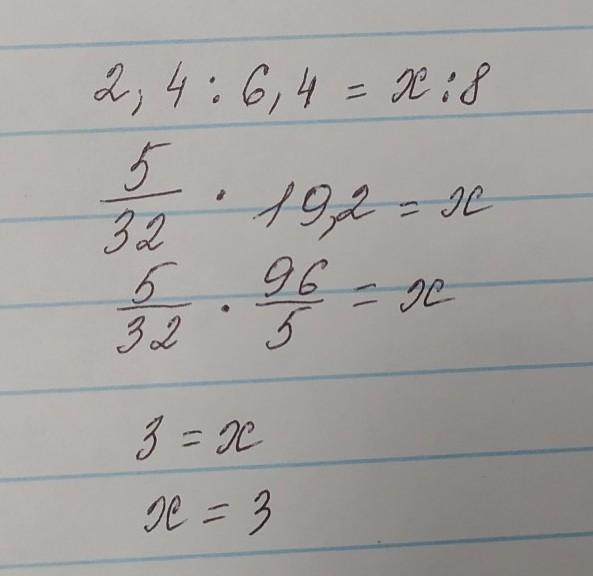 2,4 : 6,4 = x : 8
5/32 · 19,2 = x
5/32 · 96/5 = x
3 = x
x = 3